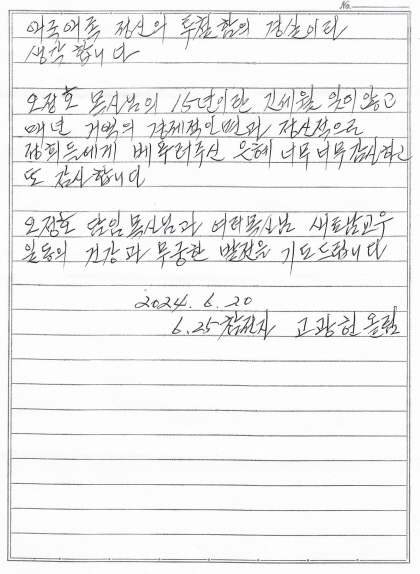 No.
애국애족 정신의 투철함의 결실이라
생각합니다
오정호 목사님의 15년이란 긴세월 잊이않고
매년 거액의 경제적인면과 정신적으로
참전용들에게 베푸러주신 은혜 너무너무 감사하고
또 감사합니다
오정호 담임목사님과 여러목사님 새로남교우
일동의 건강과 무궁한 발전을 기도드립니다
2024. 6. 20
6.25참전자 고광헌 올림